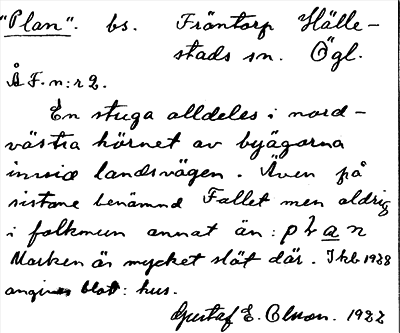 "Plan". bs. Fräntorp Hälle-
stads sn. Ögl.
Å F. n:r 2.
En stuga alldeles i nord-
västra hörnet av byägorna
invid landsvägen. Även på
sistone benämnd Fallet men aldrig
i folkmun annat än: plan
Marken är mycket slät där. Jkb 1938
angives blott: hus.
Gustaf E. Olsson. 1932